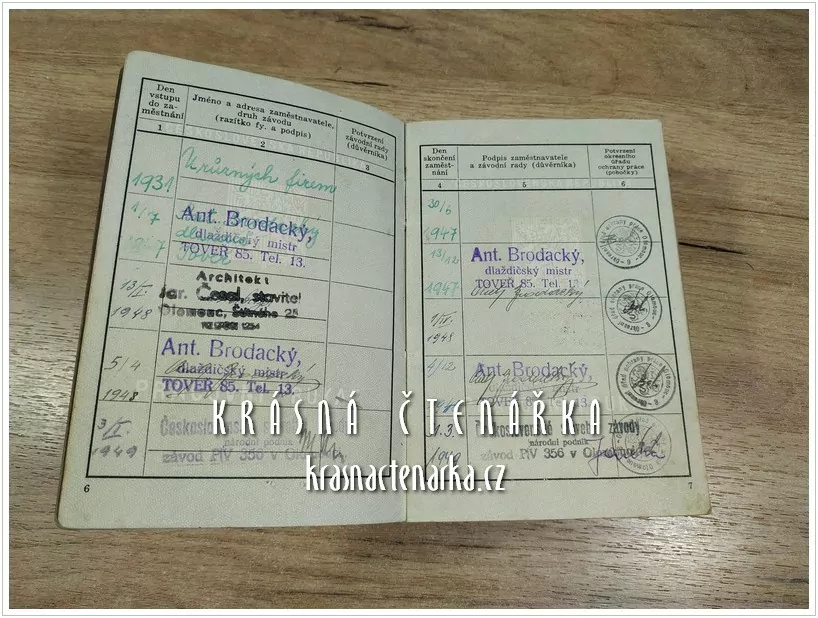 Den
vstupu
do za-
městnání
Jméno a adresa zaměstnavatele,
druh závodu
(razítko fy. a podpis)
Potvrzení
závodní rady
(důvěrníka)
1
2
3
U různých firem
1931
1/7
1947
Ant. Brodacký,
dlaždičský mistr
TOVER 85. Tel. 13.
13/I.
1948
Architekt
Jar. Česal, stavitel
Olomouc,
5/4
1948
Ant. Brodacký,
dlaždičský mistr
TOVER 85. Tel. 13.
3/I.
1949
národní podnik
závod PIV 356 v
6
Den
skončení
zaměst-
nání
Podpis zaměstnavatele
a závodní rady (důvěrníka)
Potvrzení
okresního
úřadu
ochrany práce
(pobočky)
4
5
6
30/6
1947
13/12
1947
Ant. Brodacký,
dlaždičský mistr
TOVER 85. Tel. 13.
1948
4/12
Ant. Brodacký,
dlaždičský mistr
TOVER 85. Tel. 13.
1.3.
1949
závody
národní podnik
závod PIV 356 v
7
KRÁSNÁ ČTENÁŘKA
krasnactenarka.cz